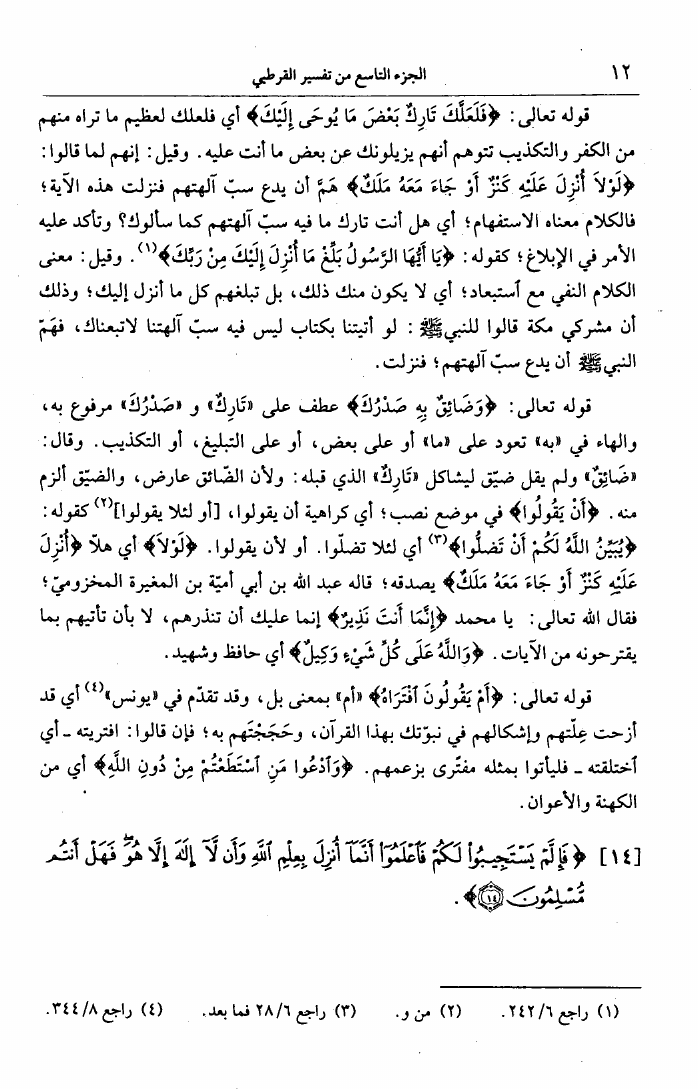 ١٢
الجزء التاسع من تفسير القرطبي
قوله تعالى: ﴿فَلَعَلَّكَ تَارِكٌ بَعْضَ مَا يُوحَى إِلَيْكَ﴾ أي فلعلك لعظيم ما تراه منهم
من الكفر والتكذيب تتوهم أنهم يزيلونك عن بعض ما أنت عليه. وقيل: إنهم لما قالوا:
﴿لَوْلاَ أُنْزِلَ عَلَيْهِ كَنْزٌ أَوْ جَاءَ مَعَهُ مَلَكٌ﴾ هَمَّ أن يدع سبّ آلهتهم فنزلت هذه الآية؛
فالكلام معناه الاستفهام؛ أي هل أنت تارك ما فيه سبّ آلهتهم كما سألوك؟ وتأكد عليه
الأمر في الإبلاغ؛ كقوله: ﴿يَا أَيُّهَا الرَّسُولُ بَلِّغْ مَا أُنْزِلَ إِلَيْكَ مِنْ رَبِّكَ﴾(١). وقيل: معنى
الكلام النفي مع ٱستبعاد؛ أي لا يكون منك ذلك، بل تبلغهم كل ما أنزل إليك؛ وذلك
أن مشركي مكة قالوا للنبي ﷺ: لو أتيتنا بكتاب ليس فيه سبّ آلهتنا لاتبعناك، فهَمّ
النبي ﷺ أن يدع سبّ آلهتهم؛ فنزلت.
قوله تعالى: ﴿وَضَائِقٌ بِهِ صَدْرُكَ﴾ عطف على «تَارِكٌ» و «صَدْرُكَ» مرفوع به،
والهاء في «به» تعود على «ما» أو على بعض، أو على التبليغ، أو التكذيب. وقال:
«ضَائِقٌ» ولم يقل ضيّق ليشاكل «تَارِكٌ» الذي قبله: ولأن الضّائق عارض، والضيّق ألزم
منه. ﴿أَنْ يَقُولُوا﴾ في موضع نصب؛ أي كراهية أن يقولوا، [أو لئلا يقولوا](٢) كقوله:
﴿يُبَيِّنُ اللَّهُ لَكُمْ أَنْ تَضلُّوا﴾(٣) أي لئلا تضلّوا. أو لأن يقولوا. ﴿لَوْلاَ﴾ أي هلاّ ﴿أُنْزِلَ
عَلَيْهِ كَنْزٌ أَوْ جَاءَ مَعَهُ مَلَكٌ﴾ يصدقه؛ قاله عبد الله بن أبي أميّة بن المغيرة المخزوميّ؛
فقال الله تعالى: يا محمد ﴿إِنَّمَا أَنتَ نَذِيرٌ﴾ إنما عليك أن تنذرهم، لا بأن تأتيهم بما
يقترحونه من الآيات. ﴿وَاللَّهُ عَلَى كُلِّ شَيْءٍ وَكِيلٌ﴾ أي حافظ وشهيد.
قوله تعالى: ﴿أَمْ يَقُولُونَ ٱفْتَرَاهُ﴾ «أم» بمعنى بل، وقد تقدّم في «يونس»(٤) أي قد
أزحت عِلّتهم وإشكالهم في نبوّتك بهذا القرآن، وحَجَجْتَهم به؛ فإن قالوا: افتريته - أي
ٱختلقته - فليأتوا بمثله مفتَرى بزعمهم. ﴿وَٱدْعُوا مَنِ ٱسْتَطَعْتُمْ مِنْ دُونِ اللَّهِ﴾ أي من
الكهنة والأعوان.
[١٤] ﴿فَإِلَّمْ يَسْتَجِيبُوا۟ لَكُمْ فَٱعْلَمُوٓا۟ أَنَّمَآ أُنزِلَ بِعِلْمِ ٱللَّهِ وَأَن لَّآ إِلَٰهَ إِلَّا هُوَ ۖ فَهَلْ أَنتُم
مُّسْلِمُونَ ١٤﴾.
(١) راجع ٢٤٢/٦. (٢) من و. (٣) راجع ٢٨/٦ فما بعد. (٤) راجع ٣٤٤/٨.